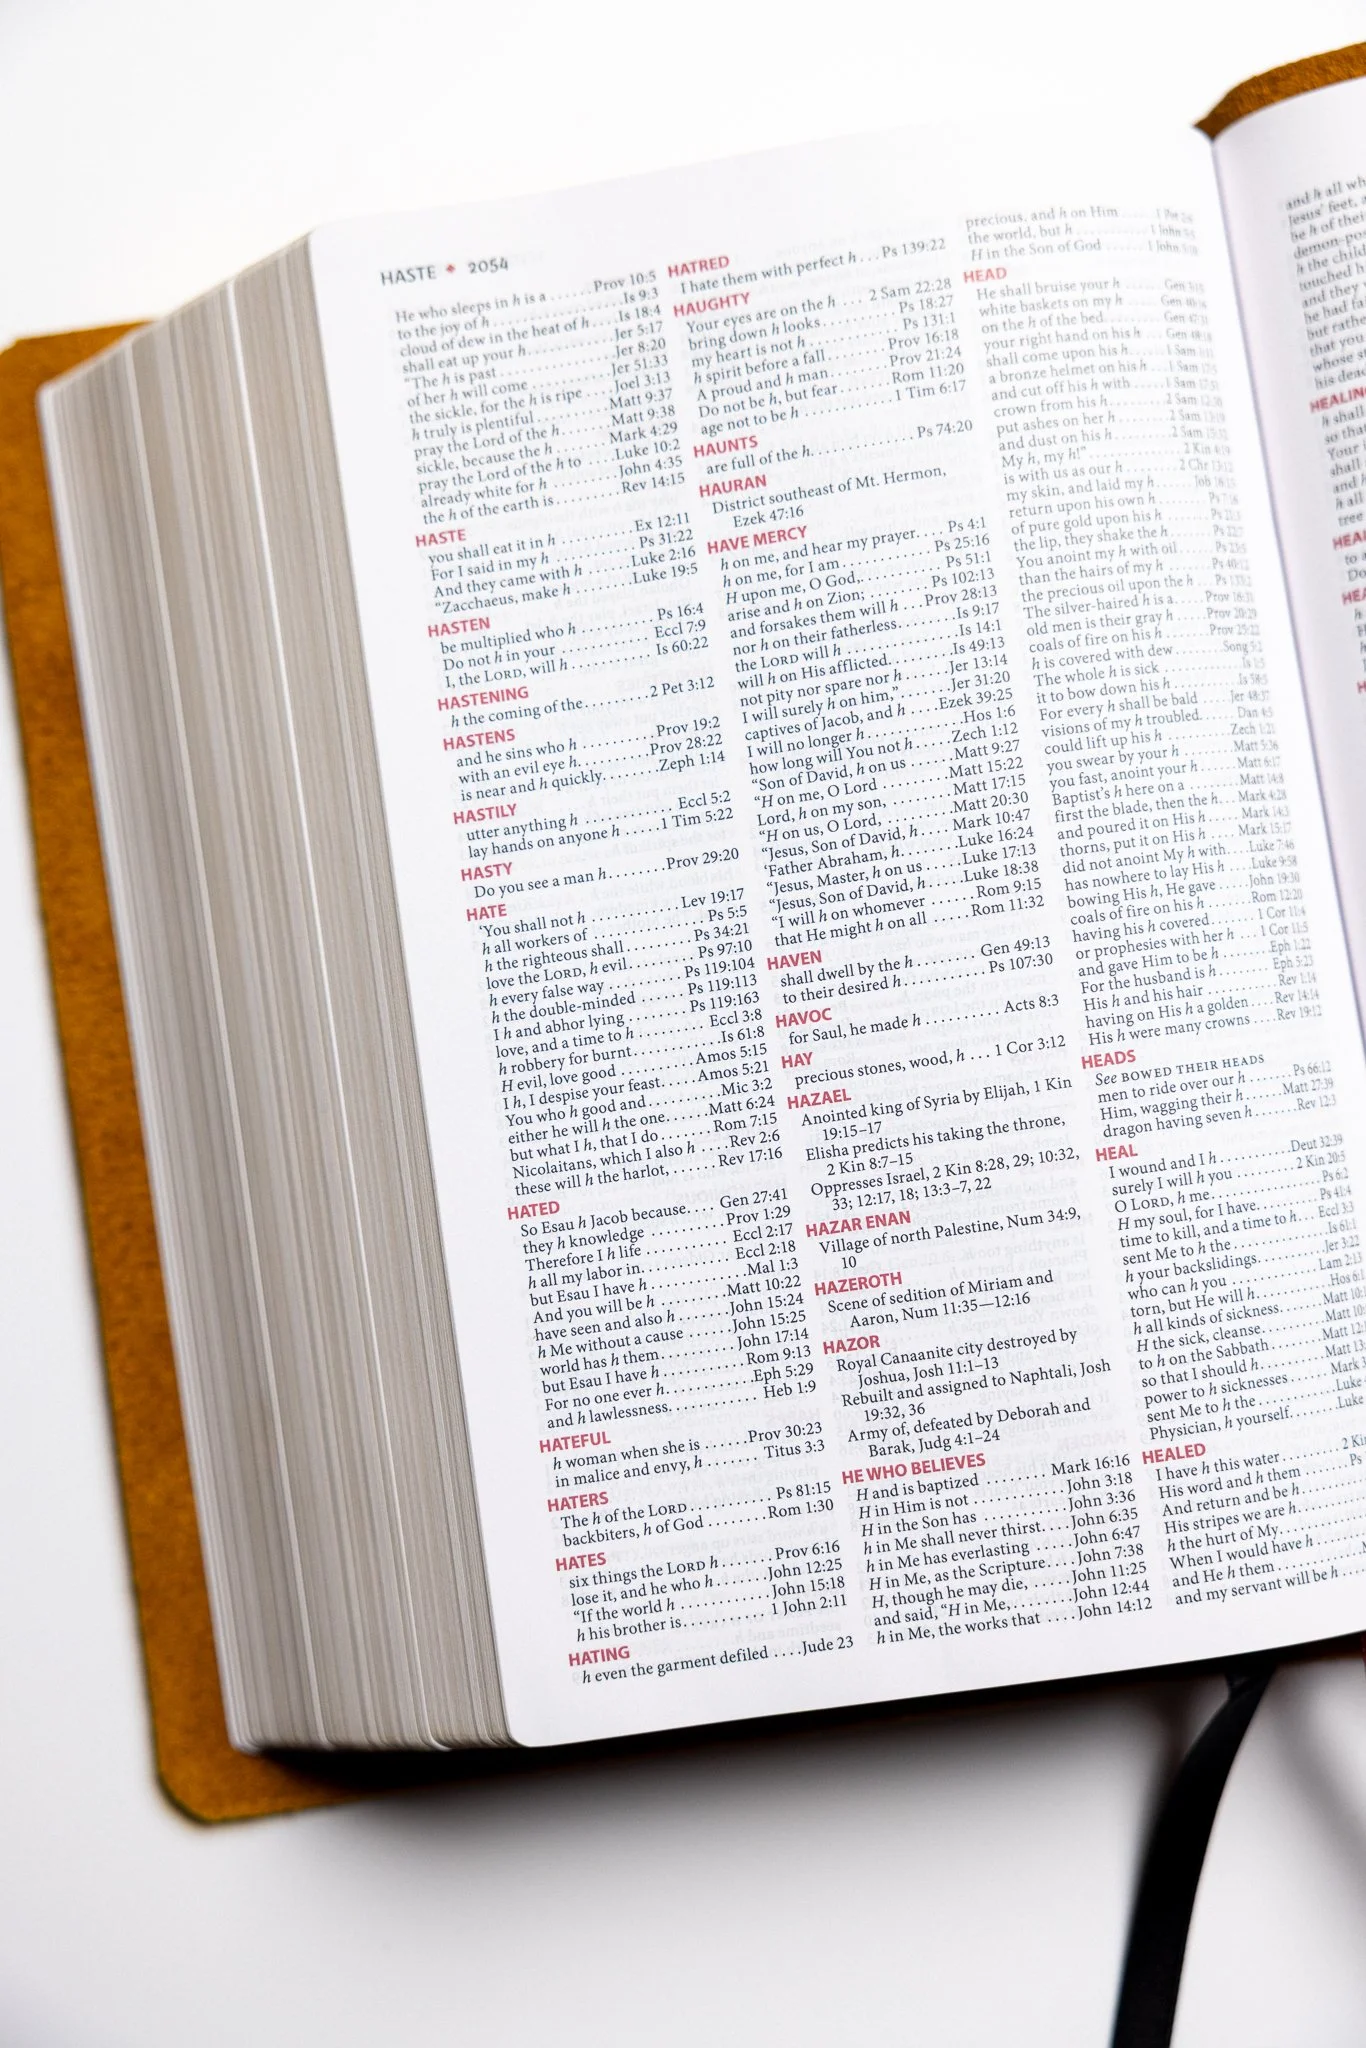 HASTE ♦ 2054
He who sleeps in h is a ...... Prov 10:5
to the joy of h .................. Is 9:3
cloud of dew in the heat of h .... Is 18:4
shall eat up your h ............ Jer 5:17
“The h is past ................ Jer 8:20
of her h will come ........... Jer 51:33
the sickle, for the h is ripe ... Joel 3:13
h truly is plentiful ........... Matt 9:37
pray the Lord of the h ....... Matt 9:38
sickle, because the h ........ Mark 4:29
pray the Lord of the h to .... Luke 10:2
already white for h .......... John 4:35
the h of the earth is ......... Rev 14:15
HASTE
you shall eat it in h .......... Ex 12:11
For I said in my h ............ Ps 31:22
And they came with h ....... Luke 2:16
“Zacchaeus, make h ......... Luke 19:5
HASTEN
be multiplied who h .......... Ps 16:4
Do not h in your ............. Eccl 7:9
I, the LORD, will h ........... Is 60:22
HASTENING
h the coming of the ........ 2 Pet 3:12
HASTENS
and he sins who h ........... Prov 19:2
with an evil eye h .......... Prov 28:22
is near and h quickly. ....... Zeph 1:14
HASTILY
utter anything h ............. Eccl 5:2
lay hands on anyone h ..... 1 Tim 5:22
HASTY
Do you see a man h ........ Prov 29:20
HATE
‘You shall not h ............. Lev 19:17
h all workers of .............. Ps 5:5
h the righteous shall ......... Ps 34:21
love the LORD, h evil ......... Ps 97:10
h every false way ........... Ps 119:104
h the double-minded ....... Ps 119:113
I h and abhor lying ......... Ps 119:163
love, and a time to h ......... Eccl 3:8
h robbery for burnt ........... Is 61:8
H evil, love good ........... Amos 5:15
I h, I despise your feast ..... Amos 5:21
You who h good and ......... Mic 3:2
either he will h the one ...... Matt 6:24
but what I h, that I do ....... Rom 7:15
Nicolaitans, which I also h .... Rev 2:6
these will h the harlot, ...... Rev 17:16
HATED
So Esau h Jacob because .... Gen 27:41
they h knowledge ........... Prov 1:29
Therefore I h life ............ Eccl 2:17
h all my labor in ............. Eccl 2:18
but Esau I have h ............ Mal 1:3
And you will be h .......... Matt 10:22
have seen and also h ....... John 15:24
h Me without a cause ...... John 15:25
world has h them .......... John 17:14
but Esau I have h ........... Rom 9:13
For no one ever h ........... Eph 5:29
and h lawlessness. ........... Heb 1:9
HATEFUL
h woman when she is ...... Prov 30:23
in malice and envy, h ....... Titus 3:3
HATERS
The h of the LORD ........... Ps 81:15
backbiters, h of God ........ Rom 1:30
HATES
six things the LORD h ....... Prov 6:16
lose it, and he who h ....... John 12:25
“If the world h ............. John 15:18
h his brother is ............ 1 John 2:11
HATING
h even the garment defiled .... Jude 23
HATRED
I hate them with perfect h ... Ps 139:22
HAUGHTY
Your eyes are on the h ... 2 Sam 22:28
bring down h looks .......... Ps 18:27
my heart is not h ............ Ps 131:1
h spirit before a fall ........ Prov 16:18
A proud and h man ........ Prov 21:24
Do not be h, but fear ....... Rom 11:20
age not to be h ............ 1 Tim 6:17
HAUNTS
are full of the h. ............. Ps 74:20
HAURAN
District southeast of Mt. Hermon,
Ezek 47:16
HAVE MERCY
h on me, and hear my prayer .... Ps 4:1
h on me, for I am ............ Ps 25:16
H upon me, O God, ........... Ps 51:1
arise and h on Zion; ......... Ps 102:13
and forsakes them will h ... Prov 28:13
nor h on their fatherless ....... Is 9:17
the LORD will h .............. Is 14:1
will h on His afflicted ......... Is 49:13
not pity nor spare nor h ..... Jer 13:14
I will surely h on him,” ...... Jer 31:20
captives of Jacob, and h .... Ezek 39:25
I will no longer h ............ Hos 1:6
how long will You not h ..... Zech 1:12
“Son of David, h on us ...... Matt 9:27
“H on me, O Lord ......... Matt 15:22
Lord, h on my son, ........ Matt 17:15
“H on us, O Lord, ......... Matt 20:30
“Jesus, Son of David, h .... Mark 10:47
‘Father Abraham, h ........ Luke 16:24
“Jesus, Master, h on us ..... Luke 17:13
“Jesus, Son of David, h .... Luke 18:38
“I will h on whomever ....... Rom 9:15
that He might h on all ..... Rom 11:32
HAVEN
shall dwell by the h ........ Gen 49:13
to their desired h .......... Ps 107:30
HAVOC
for Saul, he made h .......... Acts 8:3
HAY
precious stones, wood, h ... 1 Cor 3:12
HAZAEL
Anointed king of Syria by Elijah, 1 Kin
19:15–17
Elisha predicts his taking the throne,
2 Kin 8:7–15
Oppresses Israel, 2 Kin 8:28, 29; 10:32,
33; 12:17, 18; 13:3–7, 22
HAZAR ENAN
Village of north Palestine, Num 34:9,
10
HAZEROTH
Scene of sedition of Miriam and
Aaron, Num 11:35—12:16
HAZOR
Royal Canaanite city destroyed by
Joshua, Josh 11:1–13
Rebuilt and assigned to Naphtali, Josh
19:32, 36
Army of, defeated by Deborah and
Barak, Judg 4:1–24
HE WHO BELIEVES
H and is baptized ......... Mark 16:16
H in Him is not ............ John 3:18
H in the Son has ........... John 3:36
h in Me shall never thirst .... John 6:35
h in Me has everlasting ..... John 6:47
H in Me, as the Scripture .... John 7:38
H, though he may die, ..... John 11:25
and said, “H in Me, ........ John 12:44
h in Me, the works that .... John 14:12
precious, and h on Him ..... 1 Pet 2:6
the world, but h ........... 1 John 5:5
H in the Son of God ...... 1 John 5:10
HEAD
He shall bruise your h ...... Gen 3:15
white baskets on my h ..... Gen 40:16
on the h of the bed ........ Gen 47:31
your right hand on his h .... Gen 48:18
shall come upon his h ..... 1 Sam 1:11
a bronze helmet on his h ... 1 Sam 17:5
and cut off his h with ..... 1 Sam 17:51
crown from his h ......... 2 Sam 12:30
put ashes on her h ....... 2 Sam 13:19
and dust on his h ........ 2 Sam 15:32
My h, my h!” .............. 2 Kin 4:19
is with us as our h ........ 2 Chr 13:12
my skin, and laid my h ..... Job 16:15
return upon his own h ....... Ps 7:16
of pure gold upon his h ...... Ps 21:3
the lip, they shake the h ..... Ps 22:7
You anoint my h with oil ..... Ps 23:5
than the hairs of my h ...... Ps 40:12
the precious oil upon the h ... Ps 133:2
The silver-haired h is a .... Prov 16:31
old men is their gray h .... Prov 20:29
coals of fire on his h ...... Prov 25:22
h is covered with dew ...... Song 5:2
The whole h is sick .......... Is 1:5
it to bow down his h ......... Is 58:5
For every h shall be bald ... Jer 48:37
visions of my h troubled. ..... Dan 4:5
could lift up his h ......... Zech 1:21
you swear by your h ....... Matt 5:36
you fast, anoint your h ..... Matt 6:17
Baptist’s h here on a ....... Matt 14:8
first the blade, then the h ... Mark 4:28
and poured it on His h ..... Mark 14:3
thorns, put it on His h .... Mark 15:17
did not anoint My h with ... Luke 7:46
has nowhere to lay His h .... Luke 9:58
bowing His h, He gave .... John 19:30
coals of fire on his h ...... Rom 12:20
having his h covered ....... 1 Cor 11:4
or prophesies with her h ... 1 Cor 11:5
and gave Him to be h ...... Eph 1:22
For the husband is h ....... Eph 5:23
His h and his hair ......... Rev 1:14
having on His h a golden ... Rev 14:14
His h were many crowns ... Rev 19:12
HEADS
See BOWED THEIR HEADS
men to ride over our h ...... Ps 66:12
Him, wagging their h ..... Matt 27:39
dragon having seven h ...... Rev 12:3
HEAL
I wound and I h .......... Deut 32:39
surely I will h you ........ 2 Kin 20:5
O LORD, h me. ............... Ps 6:2
H my soul, for I have ........ Ps 41:4
time to kill, and a time to h ... Eccl 3:3
sent Me to h the ............. Is 61:1
h your backslidings. ........ Jer 3:22
who can h you ............ Lam 2:13
torn, but He will h .......... Hos 6:1
h all kinds of sickness ..... Matt 10:
H the sick, cleanse ........ Matt 10:
to h on the Sabbath ....... Matt 12:
so that I should h ......... Matt 13:
power to h sicknesses ...... Mark 3:
sent Me to the h ........... Luke
Physician, h yourself ....... Luke
HEALED
I have h this water ......... 2 Kin
His word and h them ........ Ps
And return and be h
His stripes we are h
h the hurt of My
When I would have h
and He h them
and my servant will be h
and h all
Jesus’ feet,
be h of their
demon-pos
h the child
touched h
and they
he had fa
but rathe
that you
whose
his dea
HEALING
h shall
so tha
Your
shall
and h
h all
tree
HEA
to a
Do
HEA